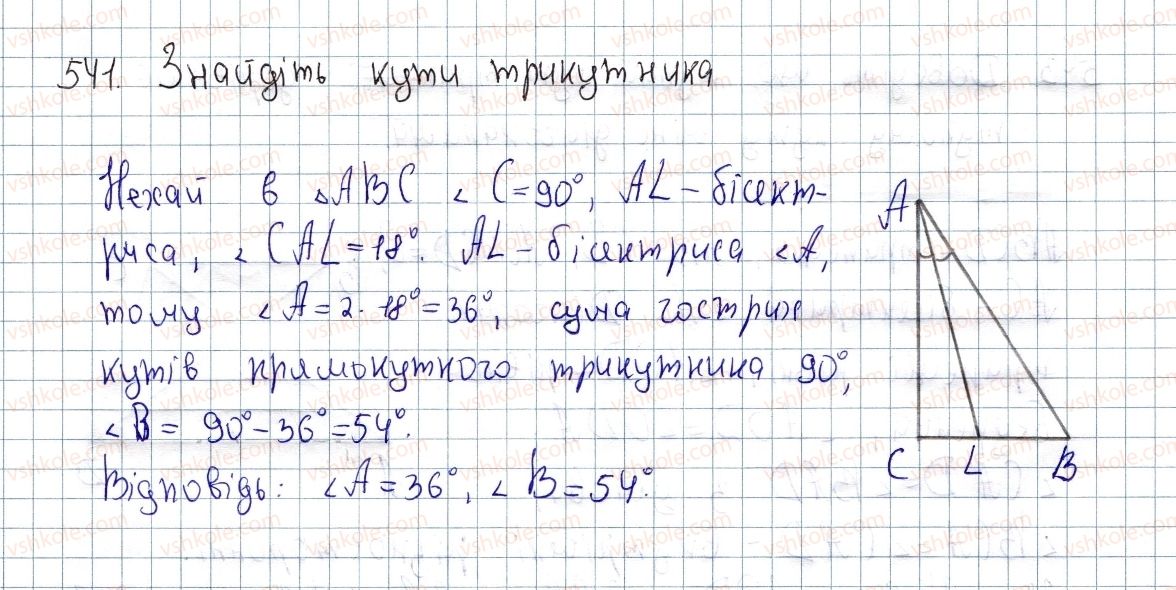 541. Знайдіть кути трикутника
Нехай в △ABC ∠C=90°, AL – бісект-
риса, ∠CAL=18°. AL – бісектриса ∠A,
тому ∠A=2·18°=36°, сума гострих
кутів прямокутного трикутника 90°,
∠B = 90°–36°=54°.
Відповідь: ∠A=36°, ∠B=54°.
A
C L B
vshkole.com